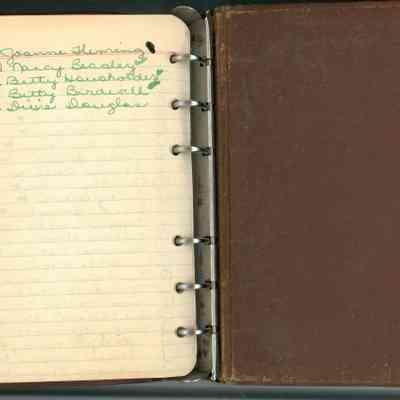 Joanne Fleming
Nancy Beasley
Betty Householder
Betty Birdsall
Dixie Douglas